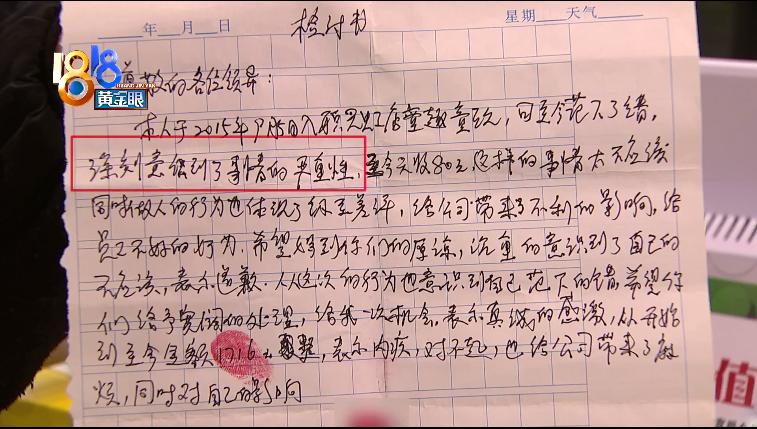 年 月 日 检讨书 星期 天气
1818
黄金眼
尊敬的各位领导：
本人于2015年 月 日入职 童趣童玩，因至今范下了错，
深刻意识到了事情的严重性，至今天收80元这样的事情太不应该
同时做人的行为也体现了 差评，给公司带来了不利的影响，给
员工不好的行为，希望得到你们的原谅，沉重的意识到了自己的
不应该，表示道歉，从这次的行为也意识到自己范下的错，希望你
们给予宽阔的处理，给我一次机会，表示真诚的感激，从开始
到至今金额1716元 ，表示内疚，对不起，也给公司带来了麻
烦，同时对自己的影响
值